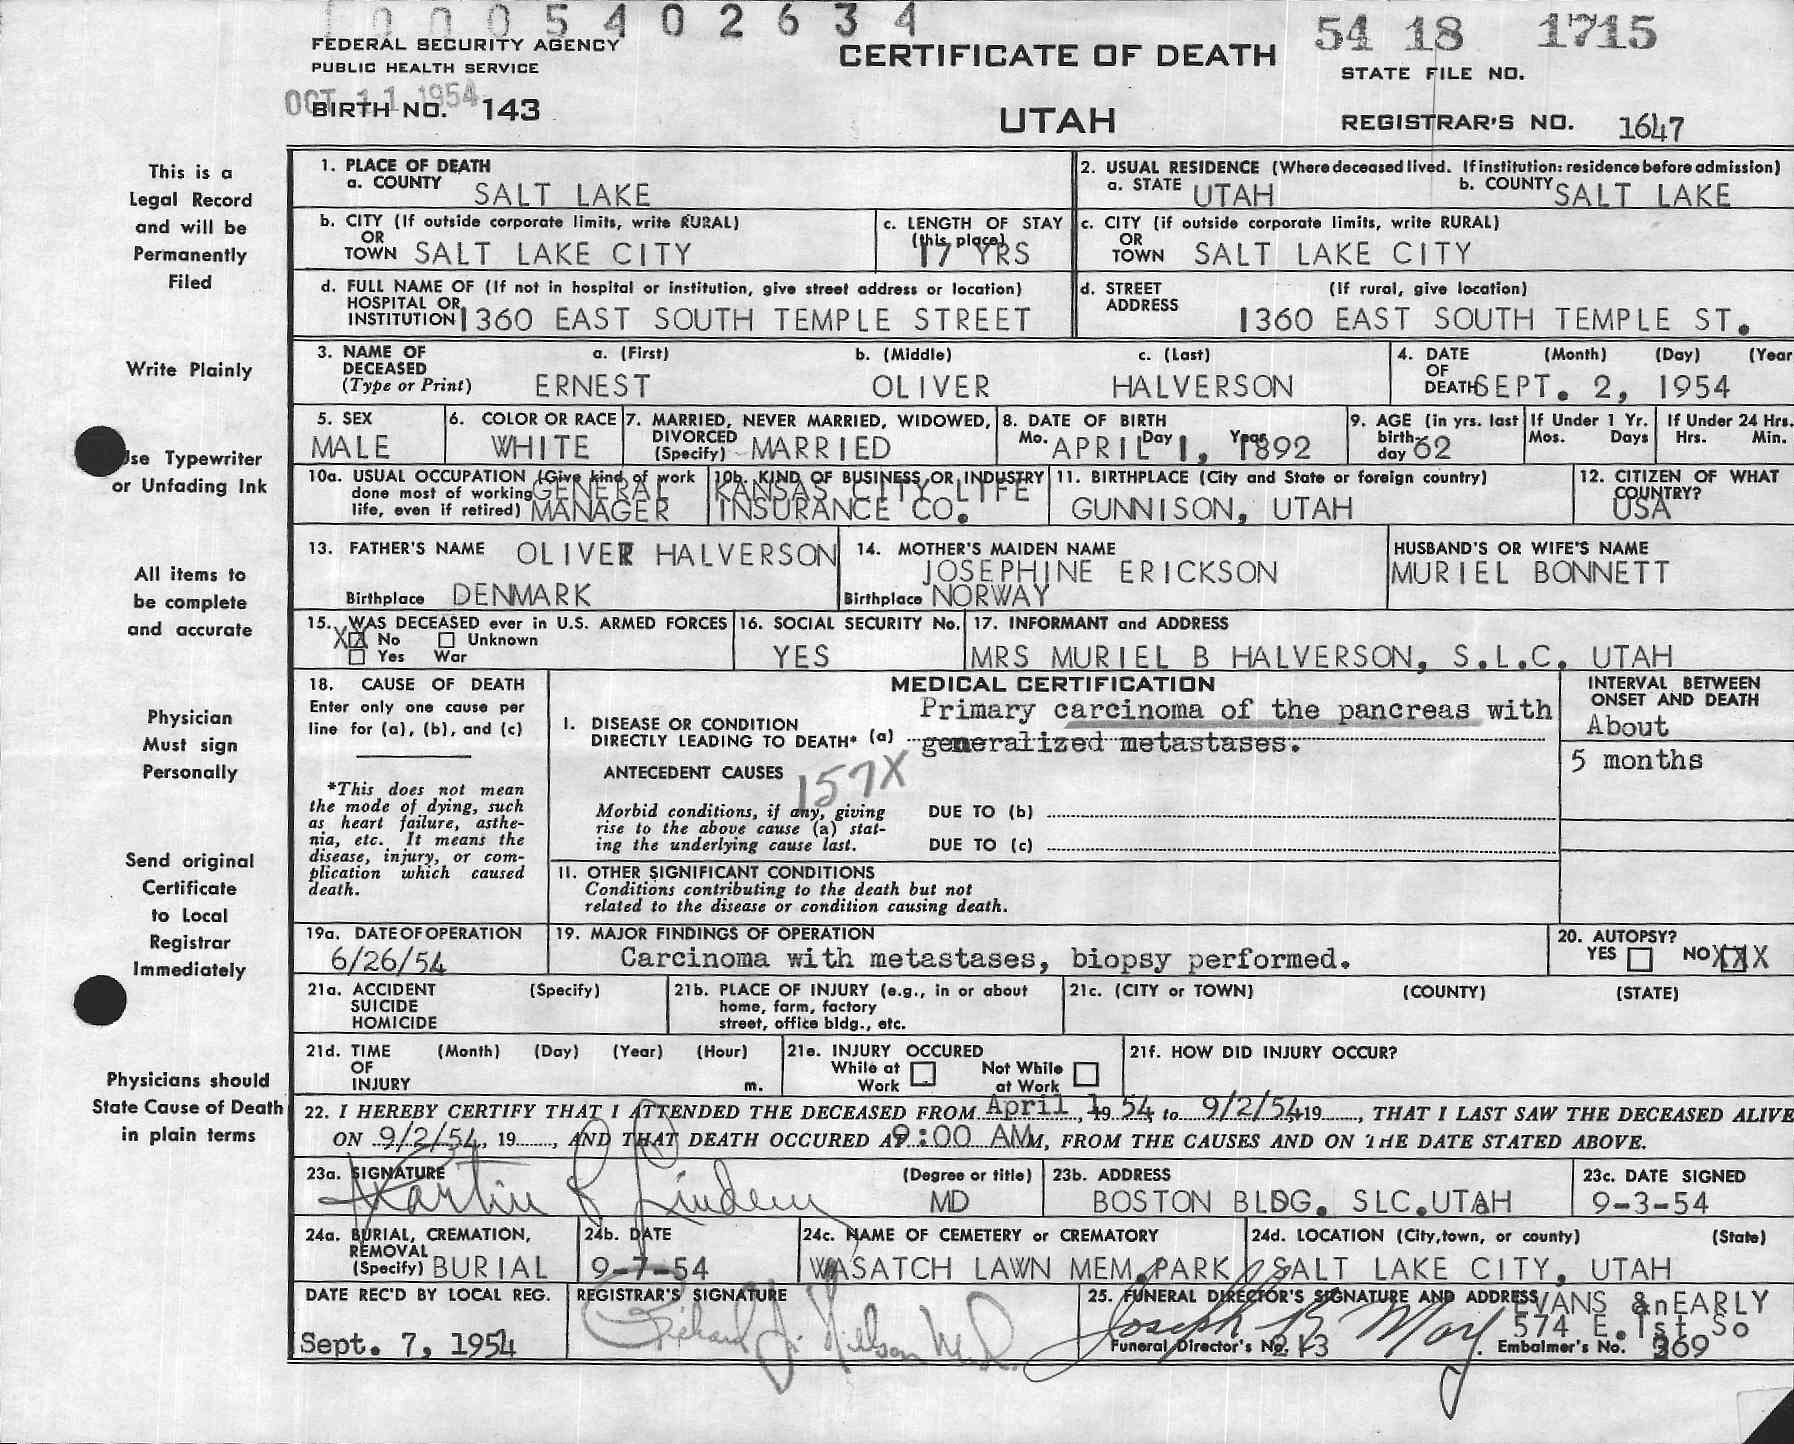 0005402634
54 18 1715
FEDERAL SECURITY AGENCY
PUBLIC HEALTH SERVICE
CERTIFICATE OF DEATH
STATE FILE NO.
OCT 11 1954
BIRTH NO. 143
UTAH
REGISTRAR'S NO. 1647
This is a
Legal Record
and will be
Permanently
Filed
Write Plainly
Use Typewriter
or Unfading Ink
All items to
be complete
and accurate
Physician
Must sign
Personally
Send original
Certificate
to Local
Registrar
Immediately
Physicians should
State Cause of Death
in plain terms
1. PLACE OF DEATH
a. COUNTY SALT LAKE
2. USUAL RESIDENCE (Where deceased lived. If institution: residence before admission)
a. STATE UTAH b. COUNTY SALT LAKE
b. CITY (If outside corporate limits, write RURAL)
OR
TOWN SALT LAKE CITY
c. LENGTH OF STAY
(this place)
17 YRS
c. CITY (if outside corporate limits, write RURAL)
OR
TOWN SALT LAKE CITY
d. FULL NAME OF (If not in hospital or institution, give street address or location)
HOSPITAL OR
INSTITUTION 1360 EAST SOUTH TEMPLE STREET
d. STREET (If rural, give location)
ADDRESS
1360 EAST SOUTH TEMPLE ST.
3. NAME OF a. (First) b. (Middle) c. (Last)
DECEASED
(Type or Print) ERNEST OLIVER HALVERSON
4. DATE (Month) (Day) (Year
OF
DEATH SEPT. 2, 1954
5. SEX
MALE
6. COLOR OR RACE
WHITE
7. MARRIED, NEVER MARRIED, WIDOWED,
DIVORCED
(Specify) MARRIED
8. DATE OF BIRTH
Mo. Day Year
APRIL 1, 1892
9. AGE (in yrs. last
birth-
day 62
If Under 1 Yr.
Mos. Days
If Under 24 Hrs.
Hrs. Min.
10a. USUAL OCCUPATION (Give kind of work
done most of working
life, even if retired) GENERAL
MANAGER
10b. KIND OF BUSINESS OR INDUSTRY
KANSAS CITY LIFE
INSURANCE CO.
11. BIRTHPLACE (City and State or foreign country)
GUNNISON, UTAH
12. CITIZEN OF WHAT
COUNTRY?
USA
13. FATHER'S NAME OLIVER HALVERSON
Birthplace DENMARK
14. MOTHER'S MAIDEN NAME
JOSEPHINE ERICKSON
Birthplace NORWAY
HUSBAND'S OR WIFE'S NAME
MURIEL BONNETT
15. WAS DECEASED ever in U.S. ARMED FORCES
XX No Unknown
Yes War
16. SOCIAL SECURITY No.
YES
17. INFORMANT and ADDRESS
MRS MURIEL B HALVERSON, S.L.C. UTAH
18. CAUSE OF DEATH
Enter only one cause per
line for (a), (b), and (c)
*This does not mean
the mode of dying, such
as heart failure, asthe-
nia, etc. It means the
disease, injury, or com-
plication which caused
death.
MEDICAL CERTIFICATION
I. DISEASE OR CONDITION
DIRECTLY LEADING TO DEATH* (a) Primary carcinoma of the pancreas with
generalized metastases.
ANTECEDENT CAUSES
157X
Morbid conditions, if any, giving
rise to the above cause (a) stat-
ing the underlying cause last.
DUE TO (b)
DUE TO (c)
II. OTHER SIGNIFICANT CONDITIONS
Conditions contributing to the death but not
related to the disease or condition causing death.
INTERVAL BETWEEN
ONSET AND DEATH
About
5 months
19a. DATE OF OPERATION
6/26/54
19. MAJOR FINDINGS OF OPERATION
Carcinoma with metastases, biopsy performed.
20. AUTOPSY?
YES NO XXX
21a. ACCIDENT (Specify)
SUICIDE
HOMICIDE
21b. PLACE OF INJURY (e.g., in or about
home, farm, factory
street, office bldg., etc.
21c. (CITY or TOWN) (COUNTY) (STATE)
21d. TIME (Month) (Day) (Year) (Hour)
OF
INJURY m.
21e. INJURY OCCURED
While at Work
Not While at Work
21f. HOW DID INJURY OCCUR?
22. I HEREBY CERTIFY THAT I ATTENDED THE DECEASED FROM April 1, 19 54 to 9/2/54, 19 , THAT I LAST SAW THE DECEASED ALIVE
ON 9/2/54, 19 , AND THAT DEATH OCCURED AT 9:00 AM M, FROM THE CAUSES AND ON THE DATE STATED ABOVE.
23a. SIGNATURE (Degree or title)
MD
23b. ADDRESS
BOSTON BLDG. SLC.UTAH
23c. DATE SIGNED
9-3-54
24a. BURIAL, CREMATION,
REMOVAL
(Specify) BURIAL
24b. DATE
9-7-54
24c. NAME OF CEMETERY or CREMATORY
WASATCH LAWN MEM.PARK
24d. LOCATION (City, town, or county) (State)
SALT LAKE CITY, UTAH
DATE REC'D BY LOCAL REG.
Sept. 7, 1954
REGISTRAR'S SIGNATURE
Richard J. Nielson M.D.
25. FUNERAL DIRECTOR'S SIGNATURE AND ADDRESS
EVANS & EARLY
574 E. 1st So
Joseph B May
Funeral Director's No. 213
Embalmer's No. 369